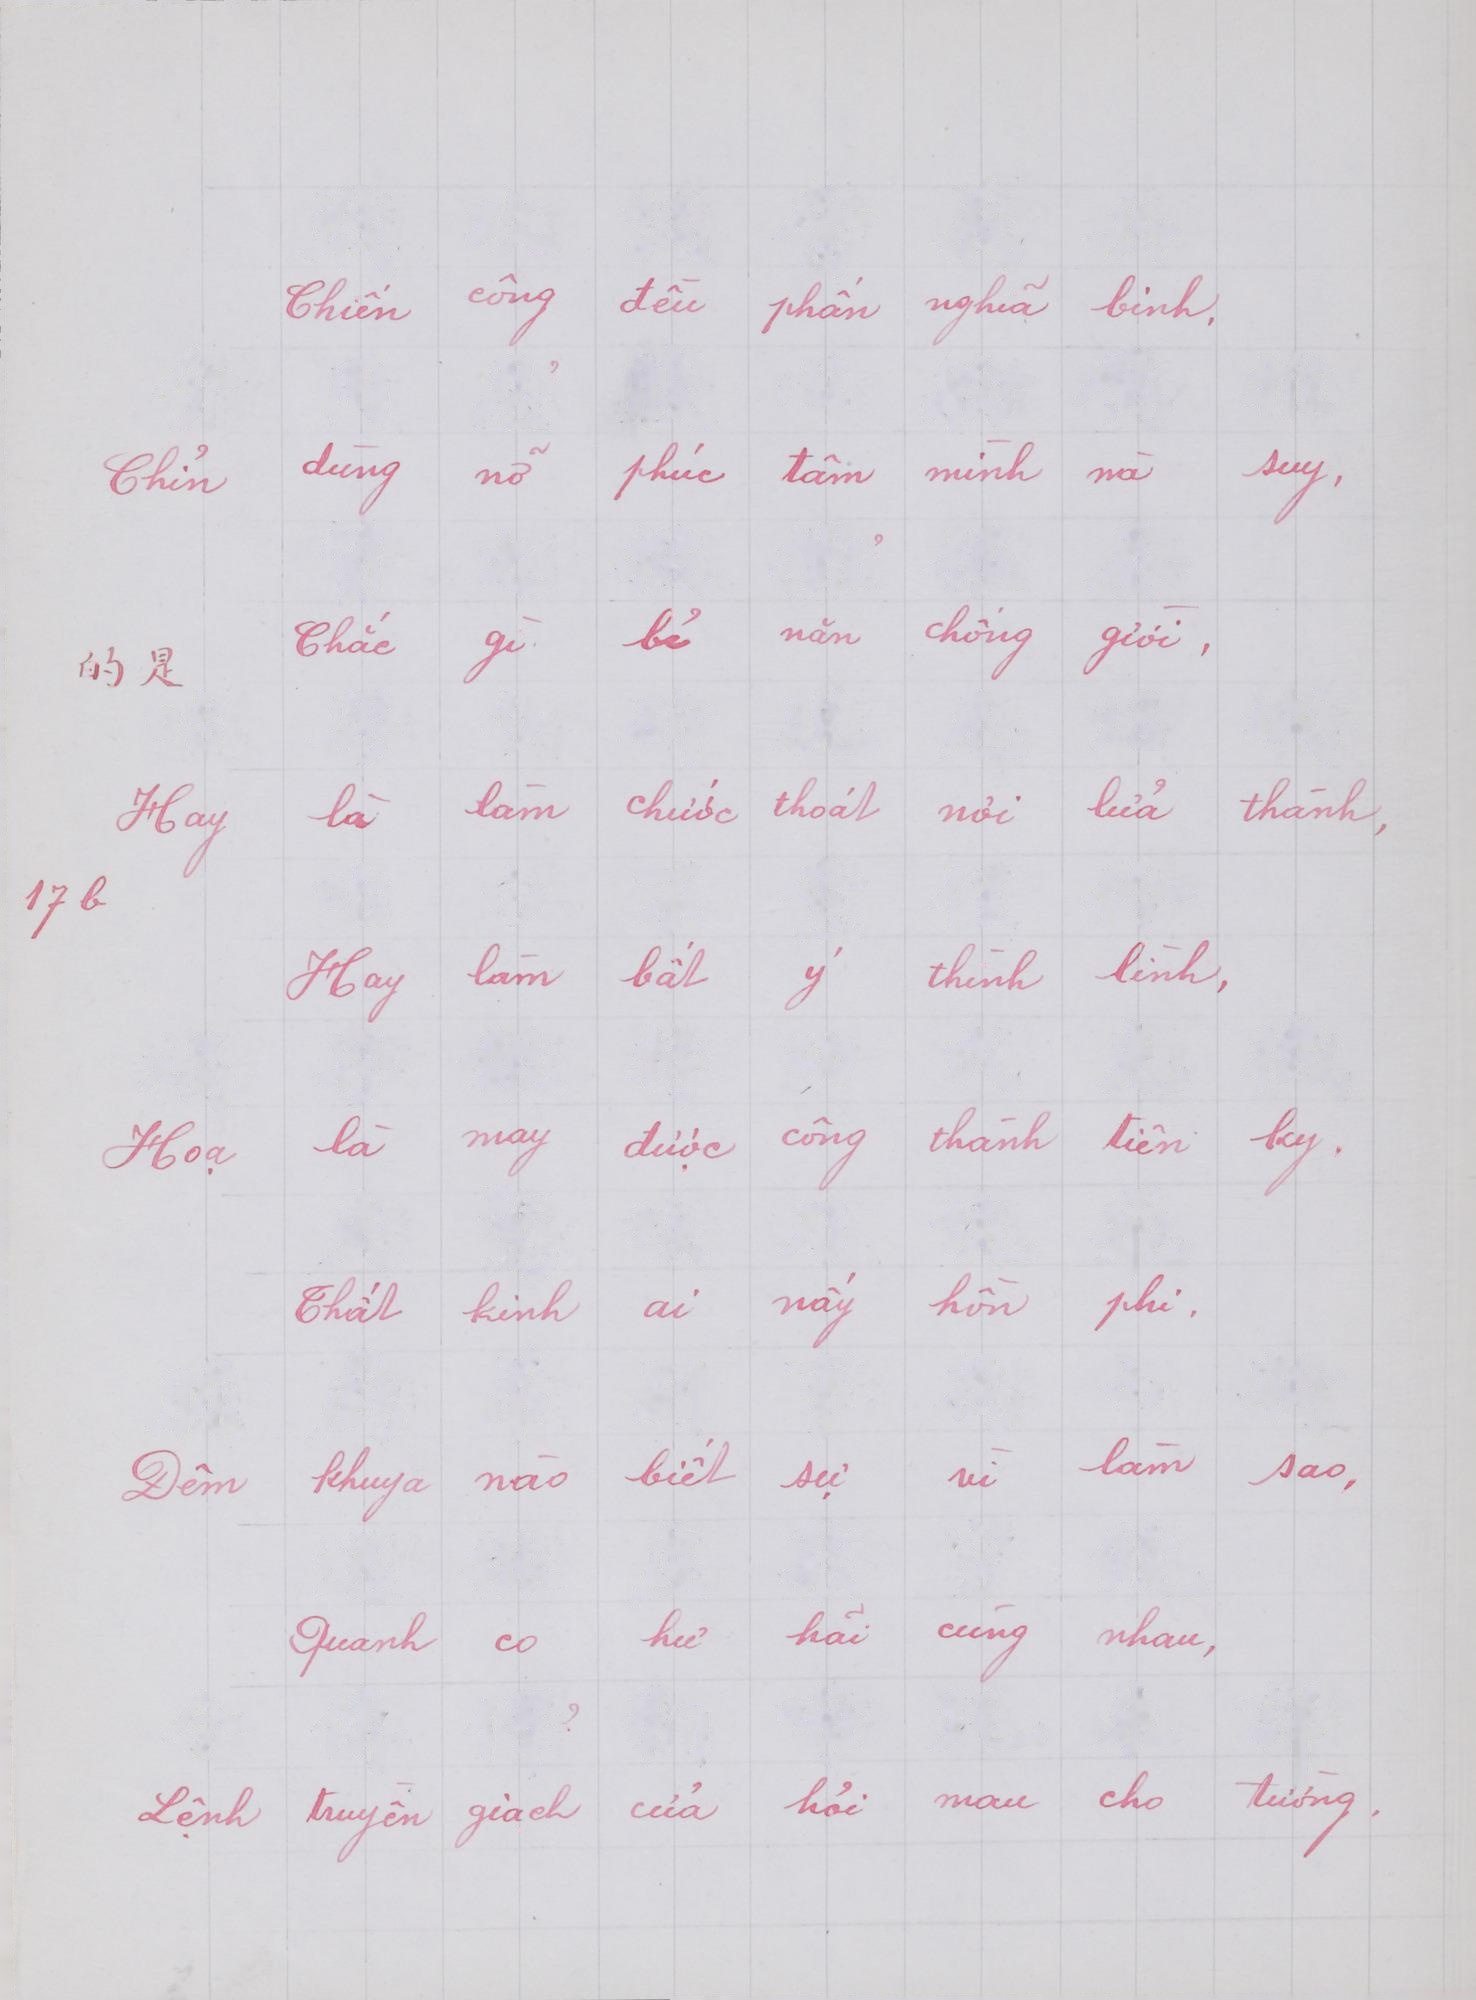 Chiến công đều phấn nghĩa binh,
?
Chỉn dùng nỗ phúc tâm mình mà suy,
?
Chắc gì bẻ năn chống giời,
的是
Hay là làm chước thoát nơi lửa thành,
17 b
Hay làm bất ý thình lình,
Hoạ là may được công thành tiên ky.
Thất kinh ai nấy hồn phi.
Đêm khuya nào biết sự vì làm sao,
Quanh co hư hãi cùng nhau,
?
Lệnh truyền giach cửa hỏi mau cho tường.